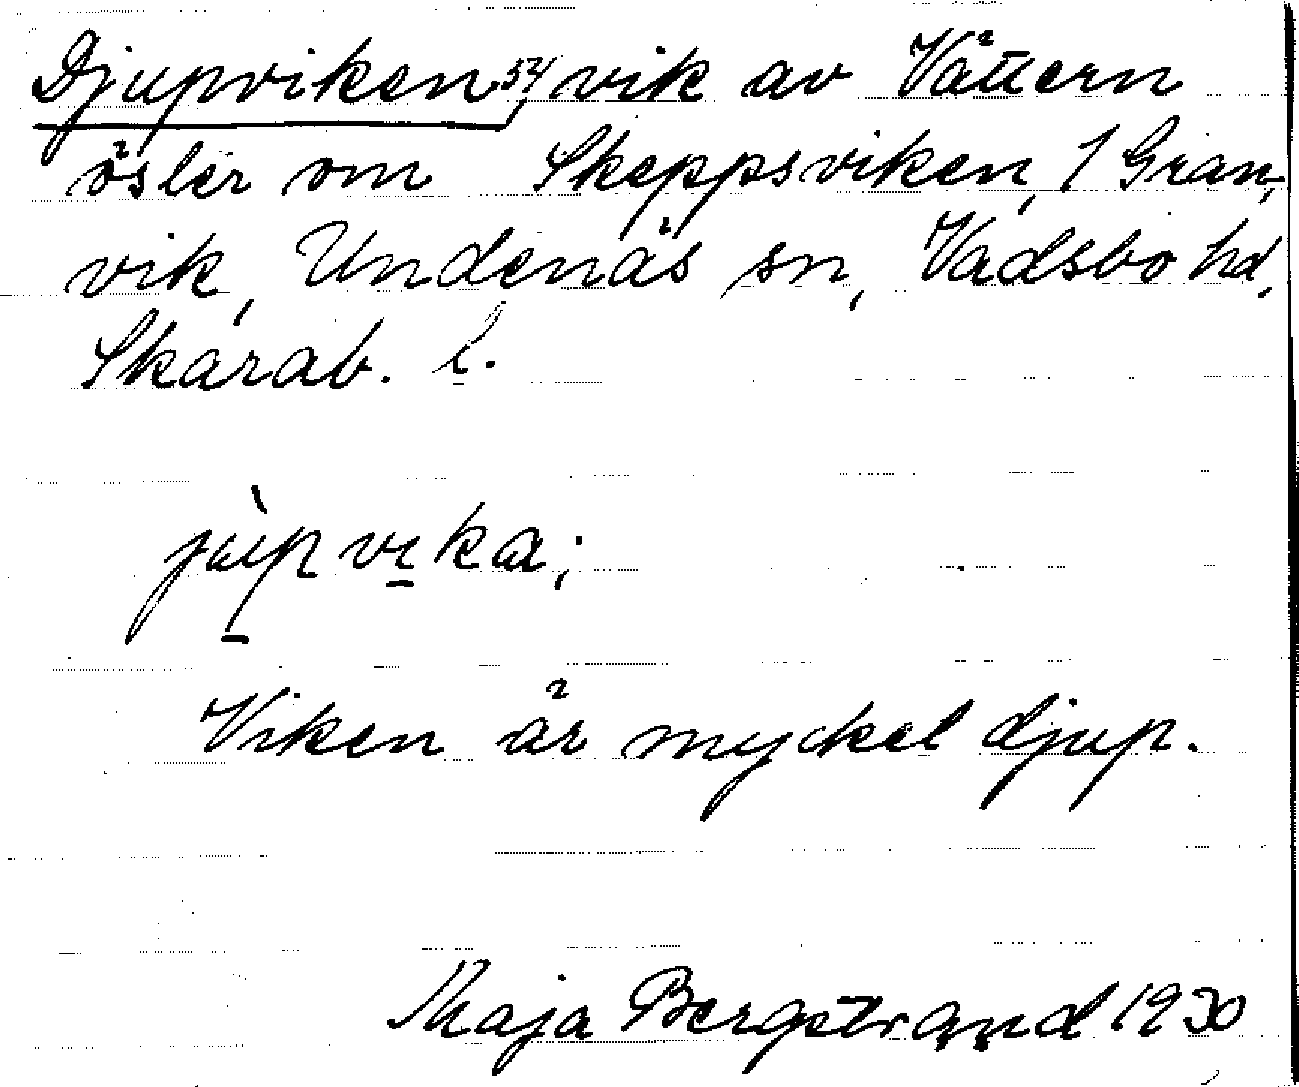 Djupviken, 54 vik av Vättern
öster om Skeppsviken, 1 Gran-
vik, Undenäs sn, Vadsbo hd,
Skarab. l.
jùpvika;
Viken är mycket djup.
Maja Bergstrand 1930